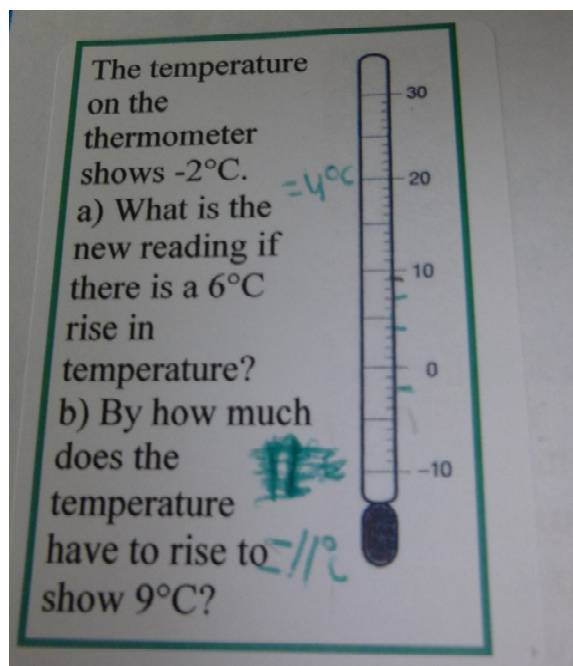 The temperature
on the
thermometer
shows -2°C.
=4°C
a) What is the
new reading if
there is a 6°C
rise in
temperature?
b) By how much
does the
temperature
have to rise to
=11°C
show 9°C?
30
20
10
0
-10